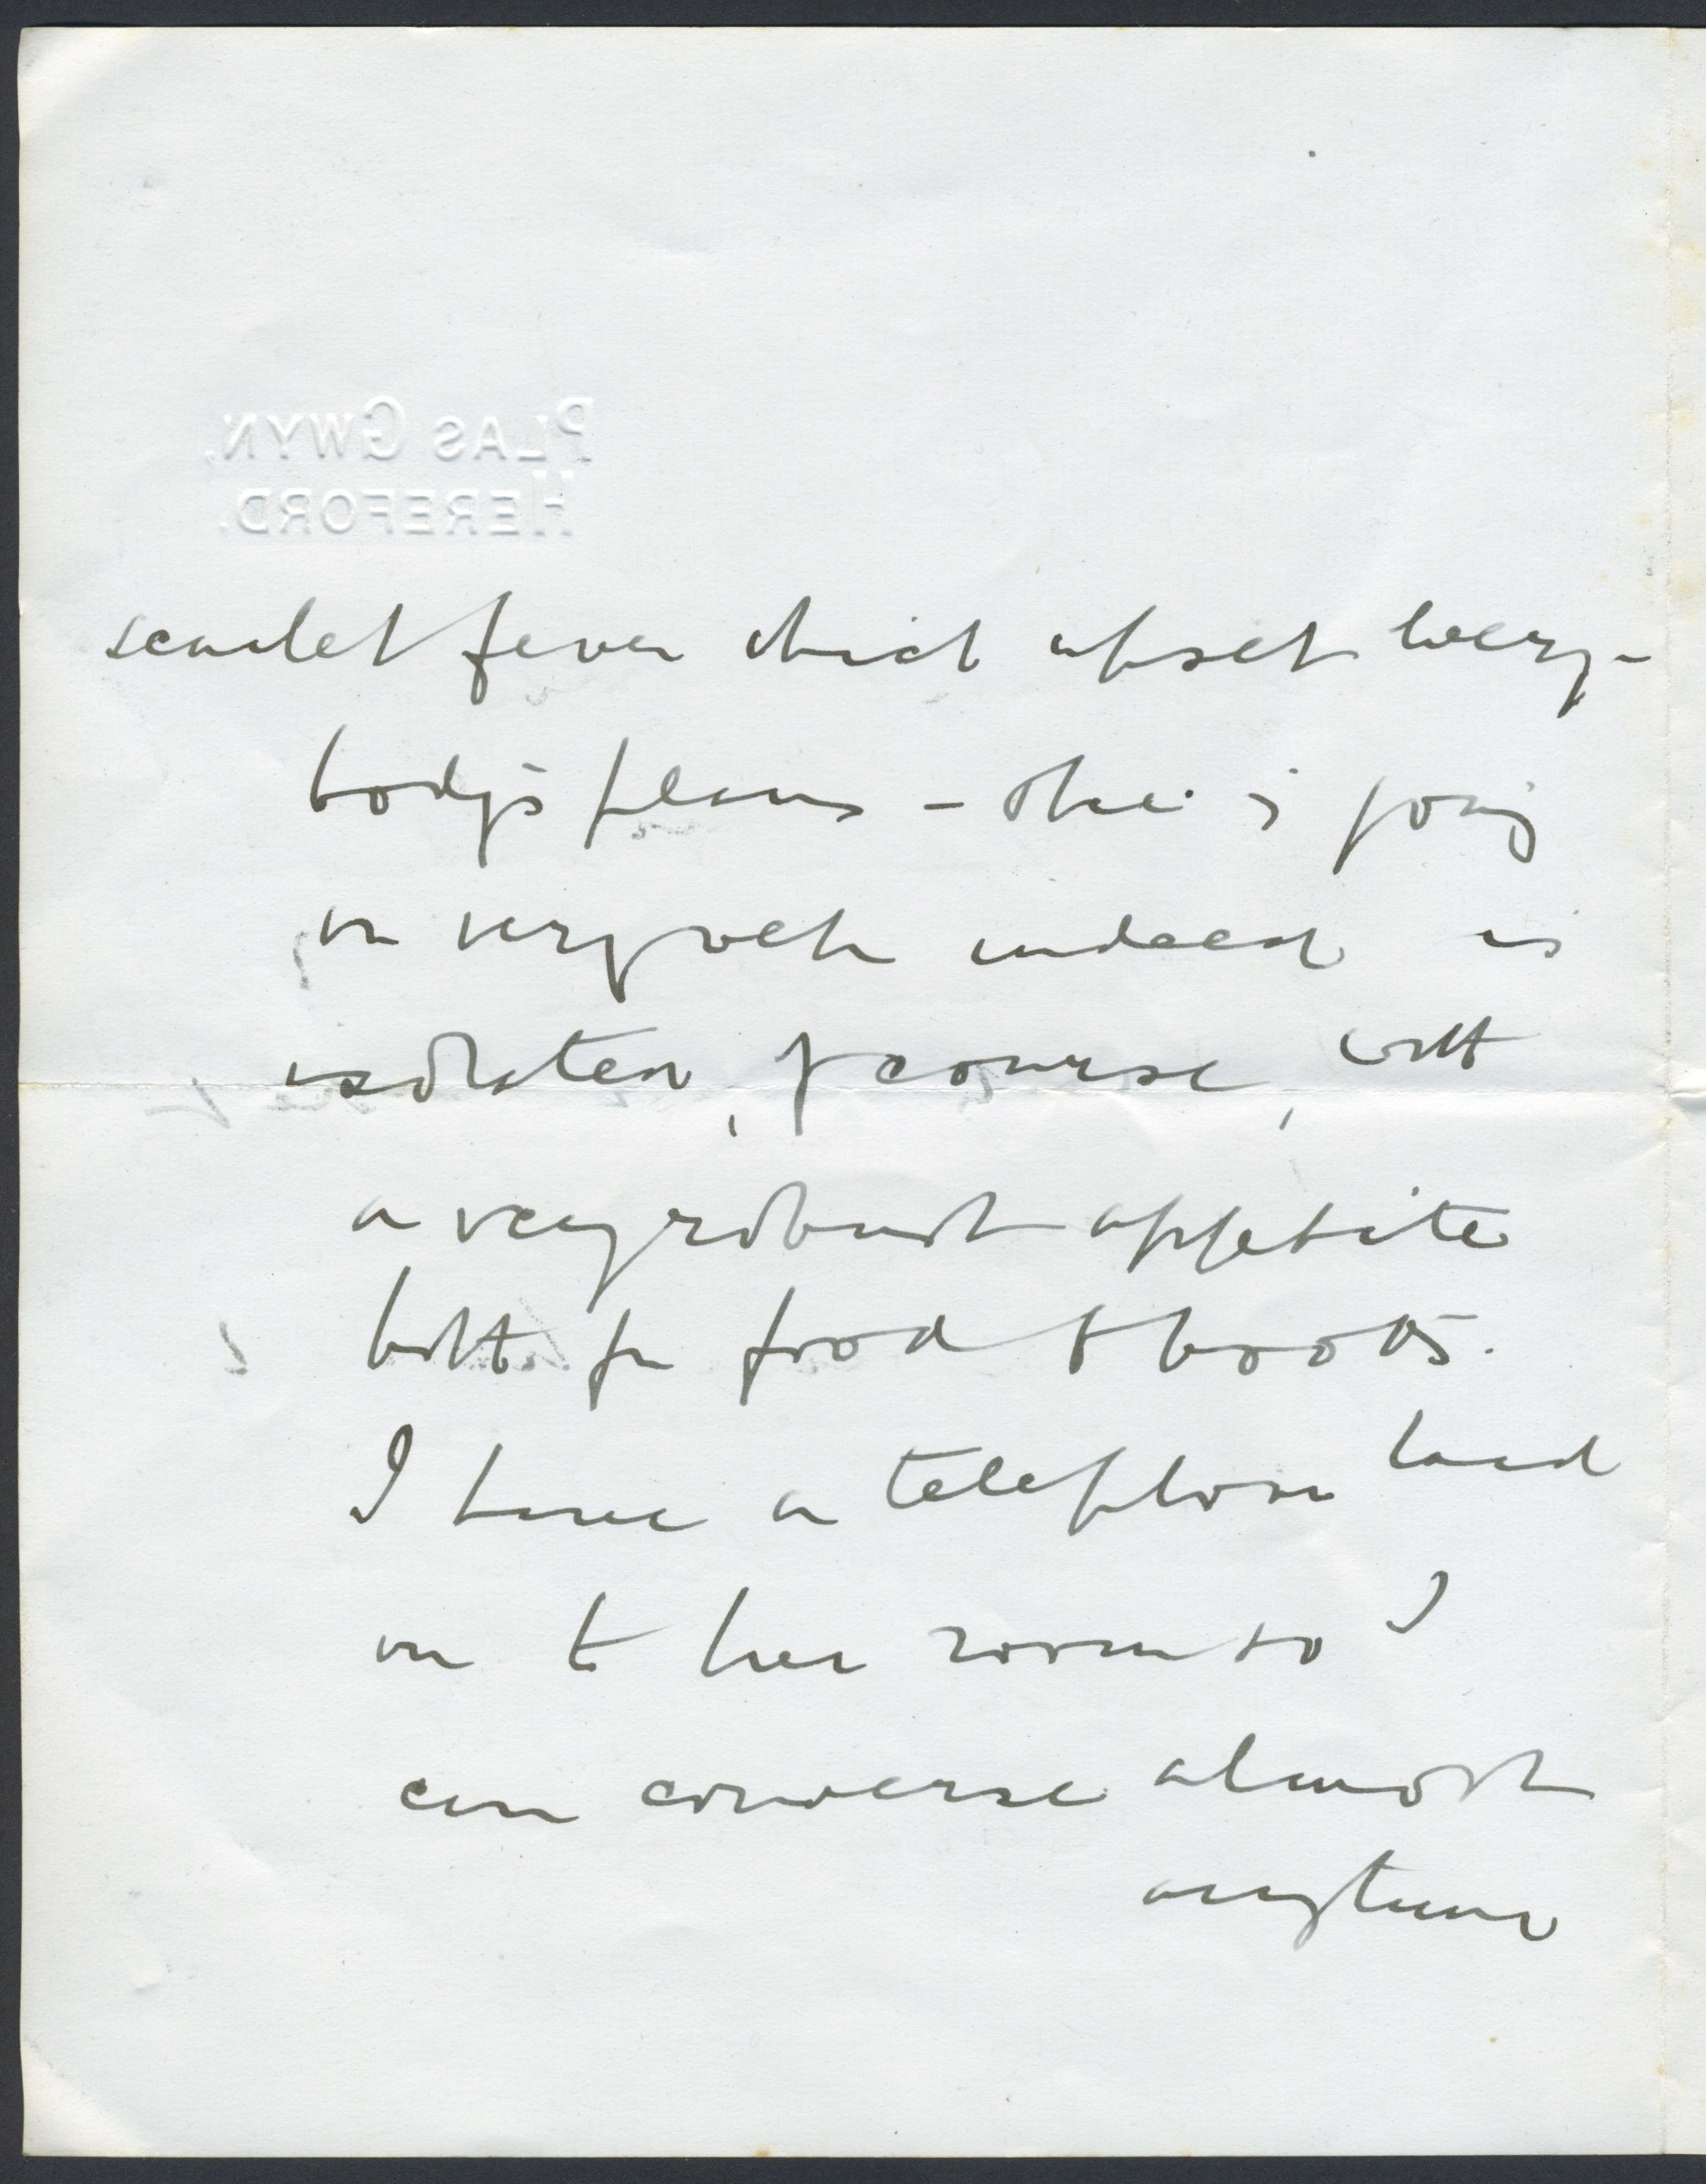 PLAS GWYN,
HEREFORD.
scarlet fever which upset every-
body's plans – she is going
on very well indeed is
isolated, of course, with
a very robust appetite
both for food & books.
I have a telephone laid
on to her room so I
can converse almost
anytime